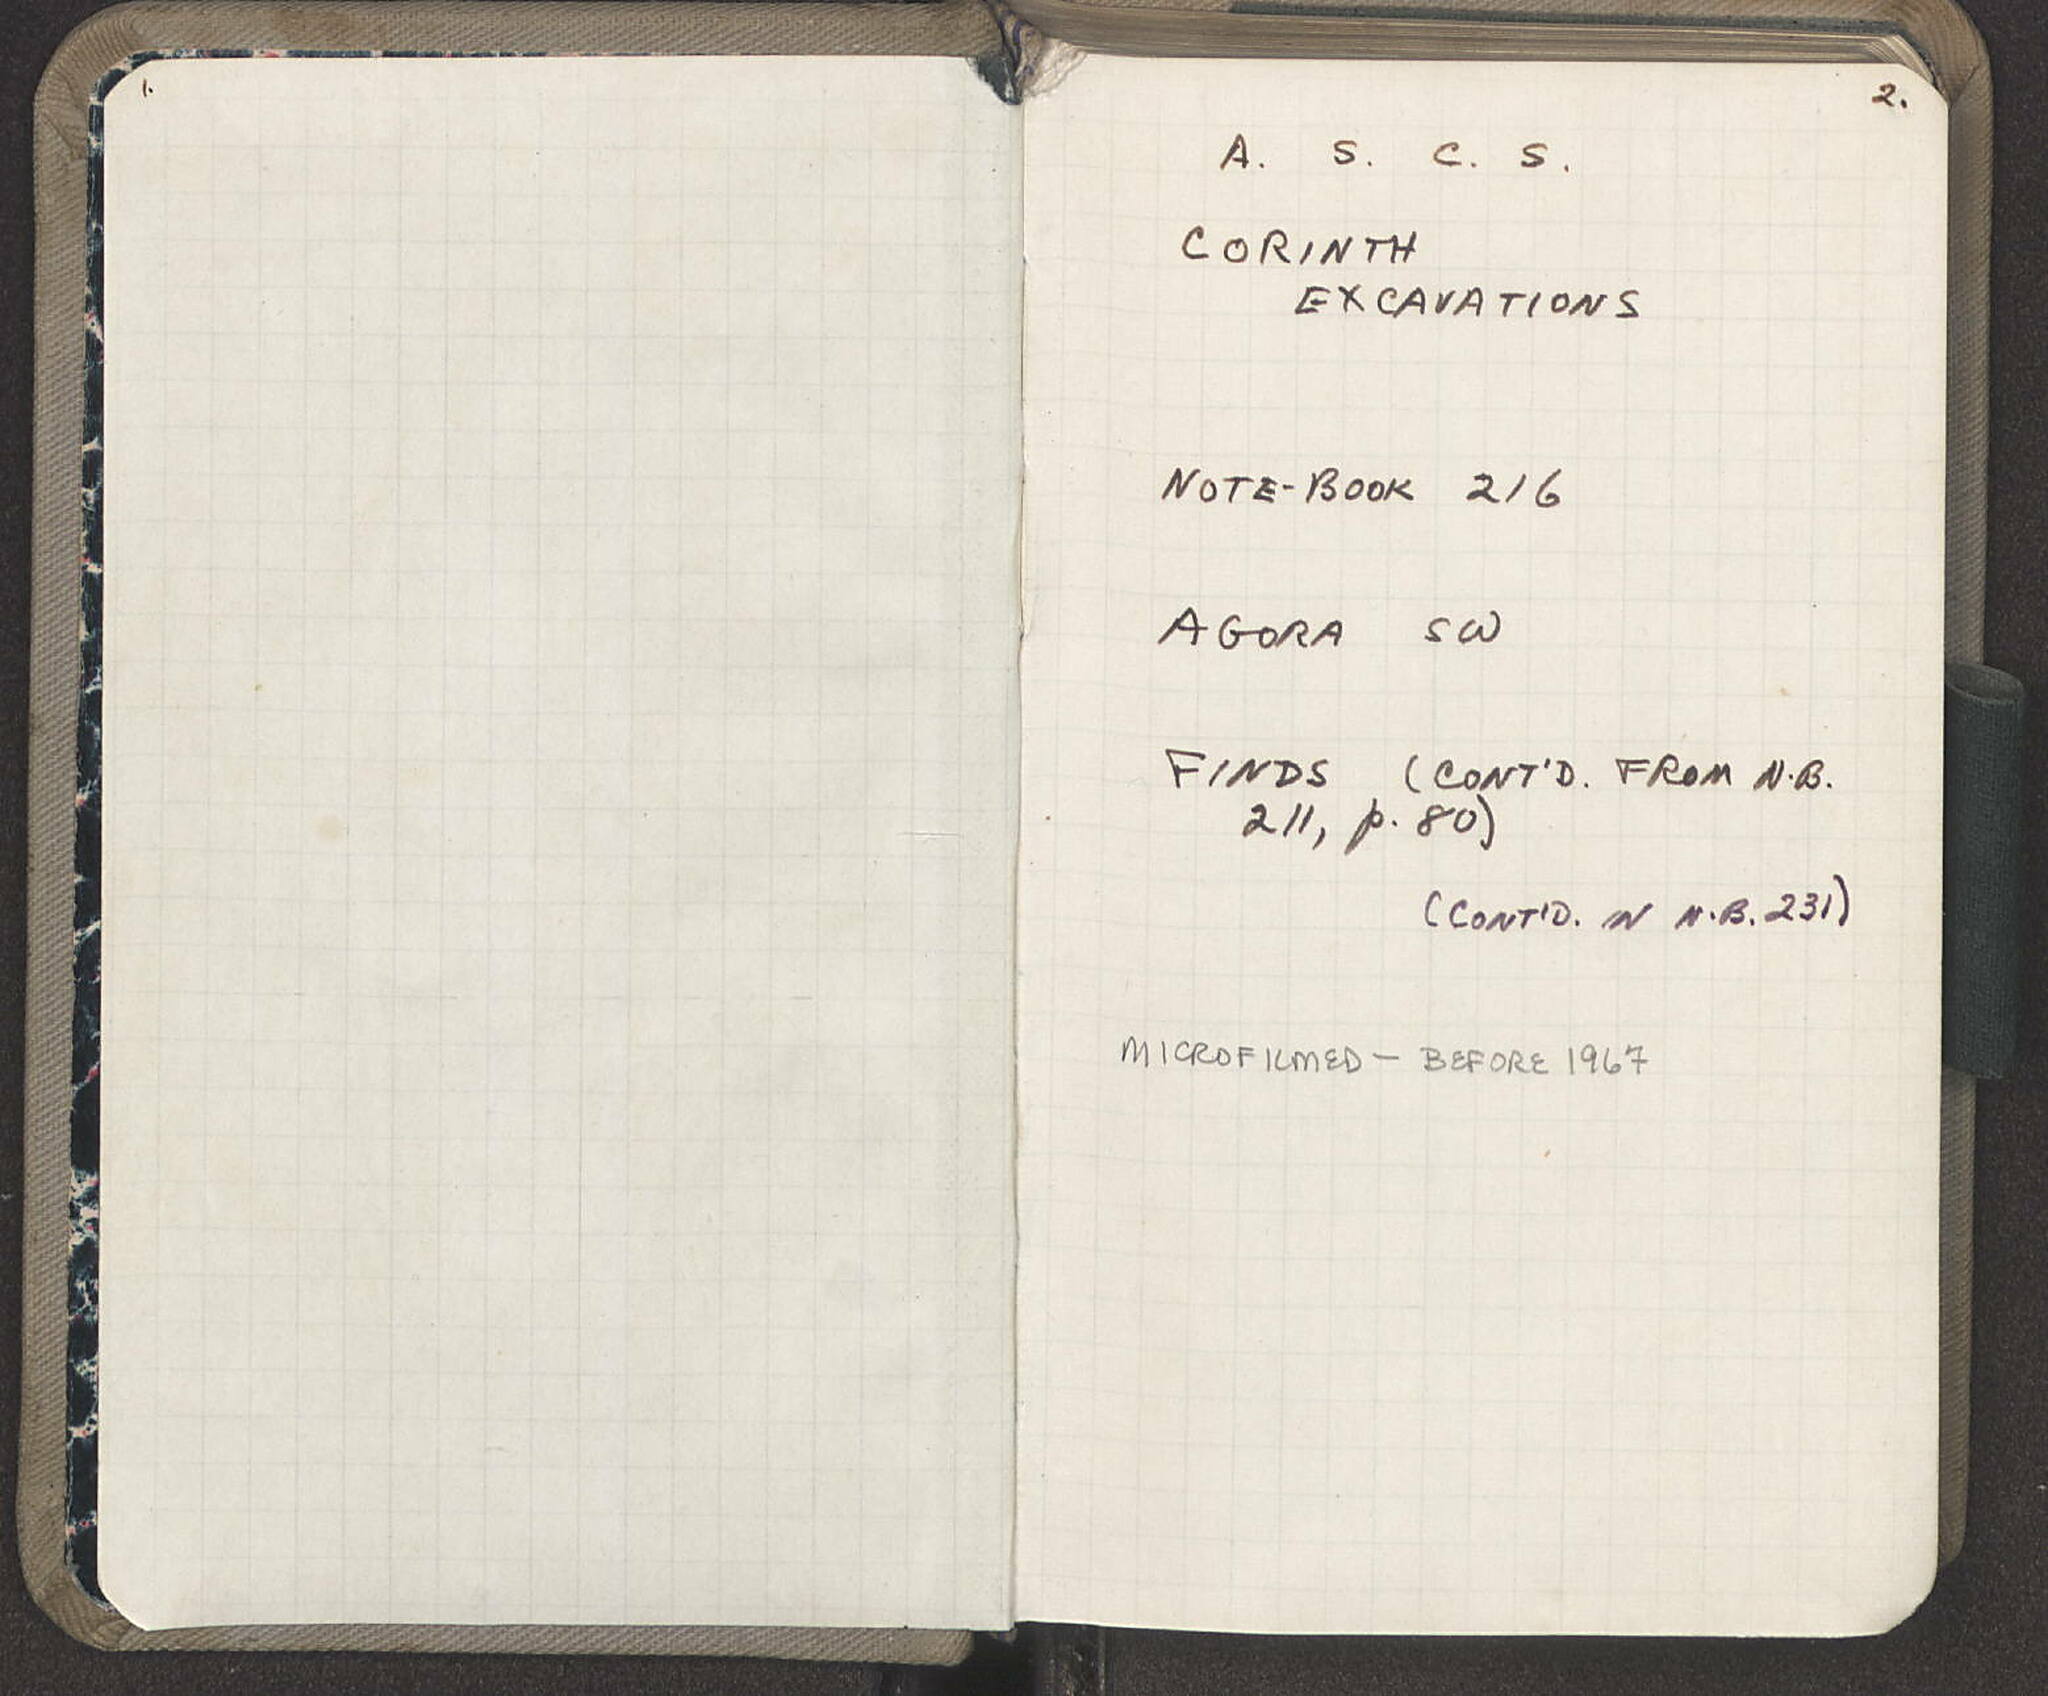 1.
2.
A. S. C. S.
CORINTH
EXCAVATIONS
NOTE-BOOK 216
AGORA SW
FINDS (CONT'D. FROM N.B.
211, p. 80)
(CONT'D. IN N.B. 231)
MICROFILMED - BEFORE 1967